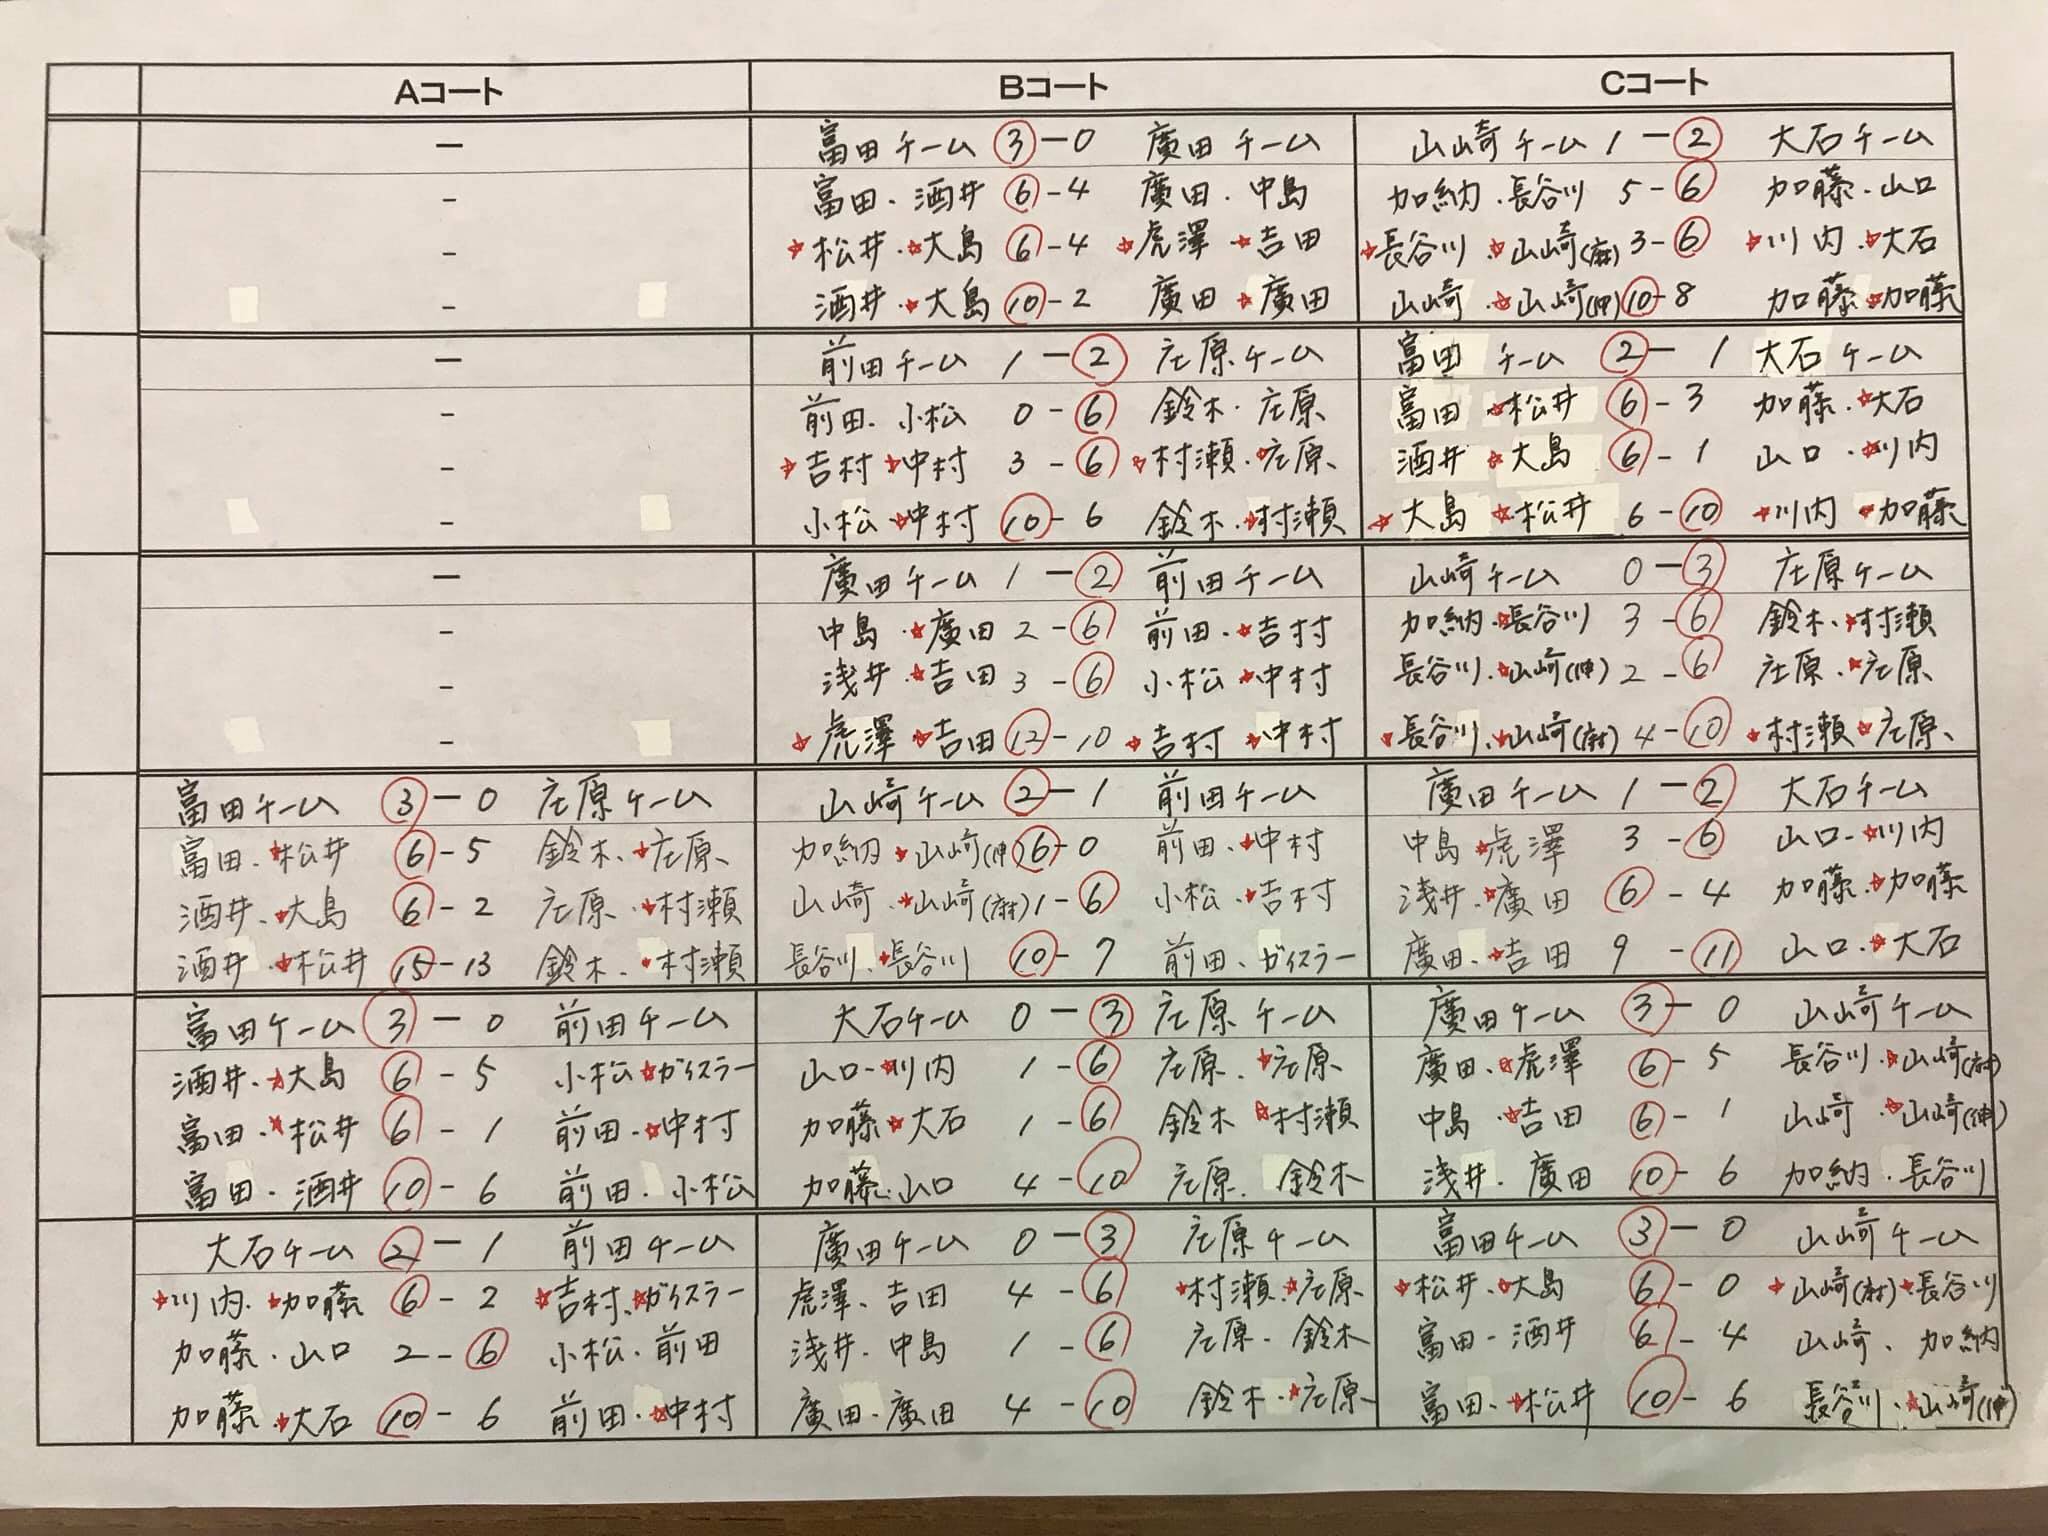 Aコート Bコート Cコート
－ 富田チーム 3－0 廣田チーム 山崎チーム 1－2 大石チーム
- 富田・酒井 6-4 廣田・中島 加納・長谷川 5-6 加藤・山口
- ☆松井・☆大島 6-4 ☆虎澤 ☆吉田 ☆長谷川 ☆山崎(麻) 3-6 ☆川内・☆大石
- 酒井・☆大島 10-2 廣田 ☆廣田 山崎 ☆山崎(伸) 10-8 加藤 ☆加藤
－ 前田チーム 1－2 庄原チーム 富田 チーム 2－1 大石チーム
- 前田・小松 0-6 鈴木・庄原 富田 ☆松井 6-3 加藤・☆大石
- ☆吉村 ☆中村 3-6 ☆村瀬・☆庄原 酒井 ☆大島 6-1 山口・☆川内
- 小松 ☆中村 10-6 鈴木・☆村瀬 ☆大島 ☆松井 6-10 ☆川内 ☆加藤
－ 廣田チーム 1－2 前田チーム 山崎チーム 0－3 庄原チーム
- 中島・☆廣田 2-6 前田・☆吉村 加納・☆長谷川 3-6 鈴木・☆村瀬
- 浅井・☆吉田 3-6 小松 ☆中村 長谷川・☆山崎(伸) 2-6 庄原・☆庄原
- ☆虎澤 ☆吉田 12-10 ☆吉村 ☆中村 ☆長谷川・☆山崎(麻) 4-10 ☆村瀬 ☆庄原
富田チーム 3－0 庄原チーム 山崎チーム 2－1 前田チーム 廣田チーム 1－2 大石チーム
富田・☆松井 6-5 鈴木・☆庄原 加納・☆山崎(伸) 6-0 前田・☆中村 中島 ☆虎澤 3-6 山口・☆川内
酒井・☆大島 6-2 庄原・☆村瀬 山崎・☆山崎(麻) 1-6 小松・☆吉村 浅井・☆廣田 6-4 加藤・☆加藤
酒井・☆松井 15-13 鈴木・☆村瀬 長谷川・☆長谷川 10-7 前田・ガイスラー 廣田・☆吉田 9-11 山口・☆大石
富田チーム 3－0 前田チーム 大石チーム 0－3 庄原チーム 廣田チーム 3－0 山崎チーム
酒井・☆大島 6-5 小松 ☆ガイスラー 山口・☆川内 1-6 庄原・☆庄原 廣田・☆虎澤 6-5 長谷川・☆山崎(麻)
富田・☆松井 6-1 前田・☆中村 加藤 ☆大石 1-6 鈴木 ☆村瀬 中島・☆吉田 6-1 山崎・☆山崎(伸)
富田・酒井 10-6 前田・小松 加藤・山口 4-10 庄原・鈴木 浅井・廣田 10-6 加納・長谷川
大石チーム 2－1 前田チーム 廣田チーム 0－3 庄原チーム 富田チーム 3－0 山崎チーム
☆川内・☆加藤 6-2 ☆吉村、☆ガイスラー 虎澤、吉田 4-6 ☆村瀬・☆庄原 ☆松井・☆大島 6-0 ☆山崎(麻) ☆長谷川
加藤・山口 2-6 小松・前田 浅井・中島 1-6 庄原・鈴木 富田・酒井 6-4 山崎、加納
加藤・☆大石 10-6 前田・☆中村 廣田・廣田 4-10 鈴木・☆庄原 富田・☆松井 10-6 長谷川・☆山崎(伸)